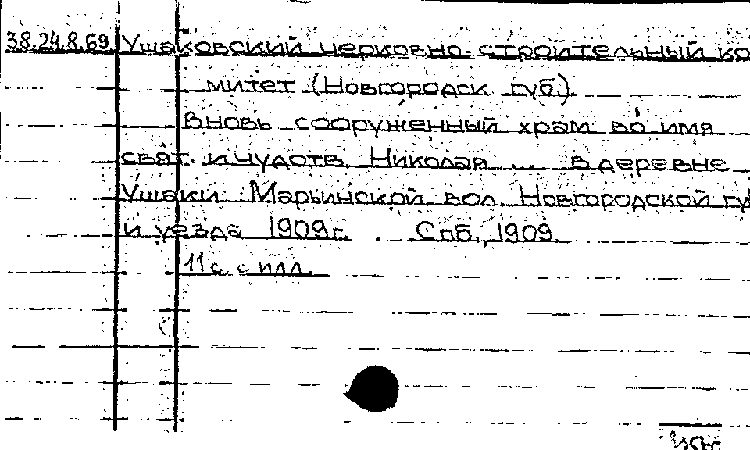 38.24.8.69 Ушаковский церковно-строительный ко
митет (Новгородск. губ.)
Вновь сооруженный храм во имя
свят. и чудотв. Николая ... в деревне
Ушаки Марьинской вол. Новгородской гу
и уезда 1909 г. Спб., 1909.
11 с. с илл.